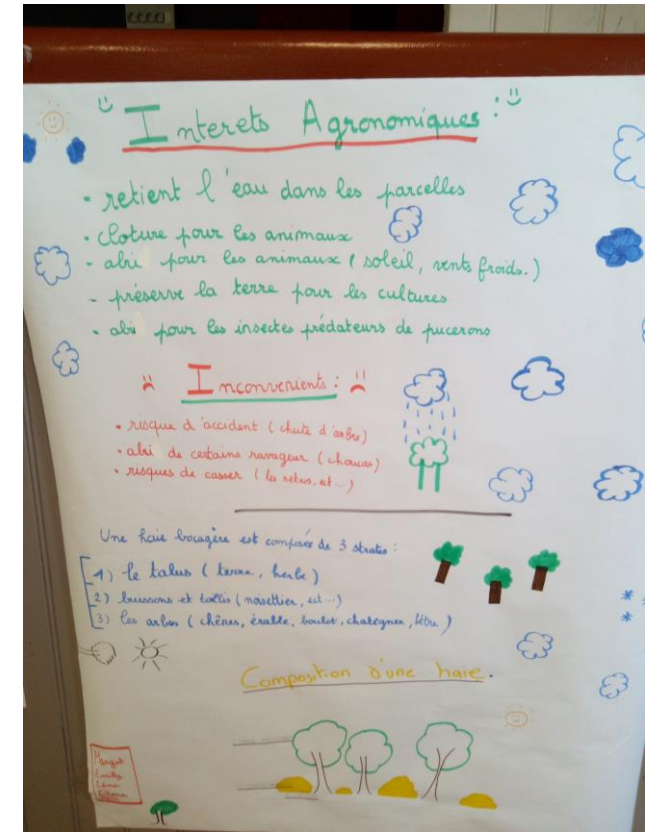 Interets Agronomiques :
- retient l'eau dans les parcelles
- cloture pour les animaux
- abri pour les animaux ( soleil, vents froids.)
- préserve la terre pour les cultures
- abri pour les insectes prédateurs de pucerons
Inconvenients :
• risque d'accident ( chute d'arbre)
• abri de certains ravageur ( choucas)
• risques de casser ( les retros, ect...)
Une haie bocagère est composée de 3 strates :
1) le talus ( terre, herbe )
2) buissons et taillis ( noisettier, ect...)
3) les arbres ( chênes, érable, boulot, chateigner, hêtre )
Composition d'une haie.
Margot
Emilly